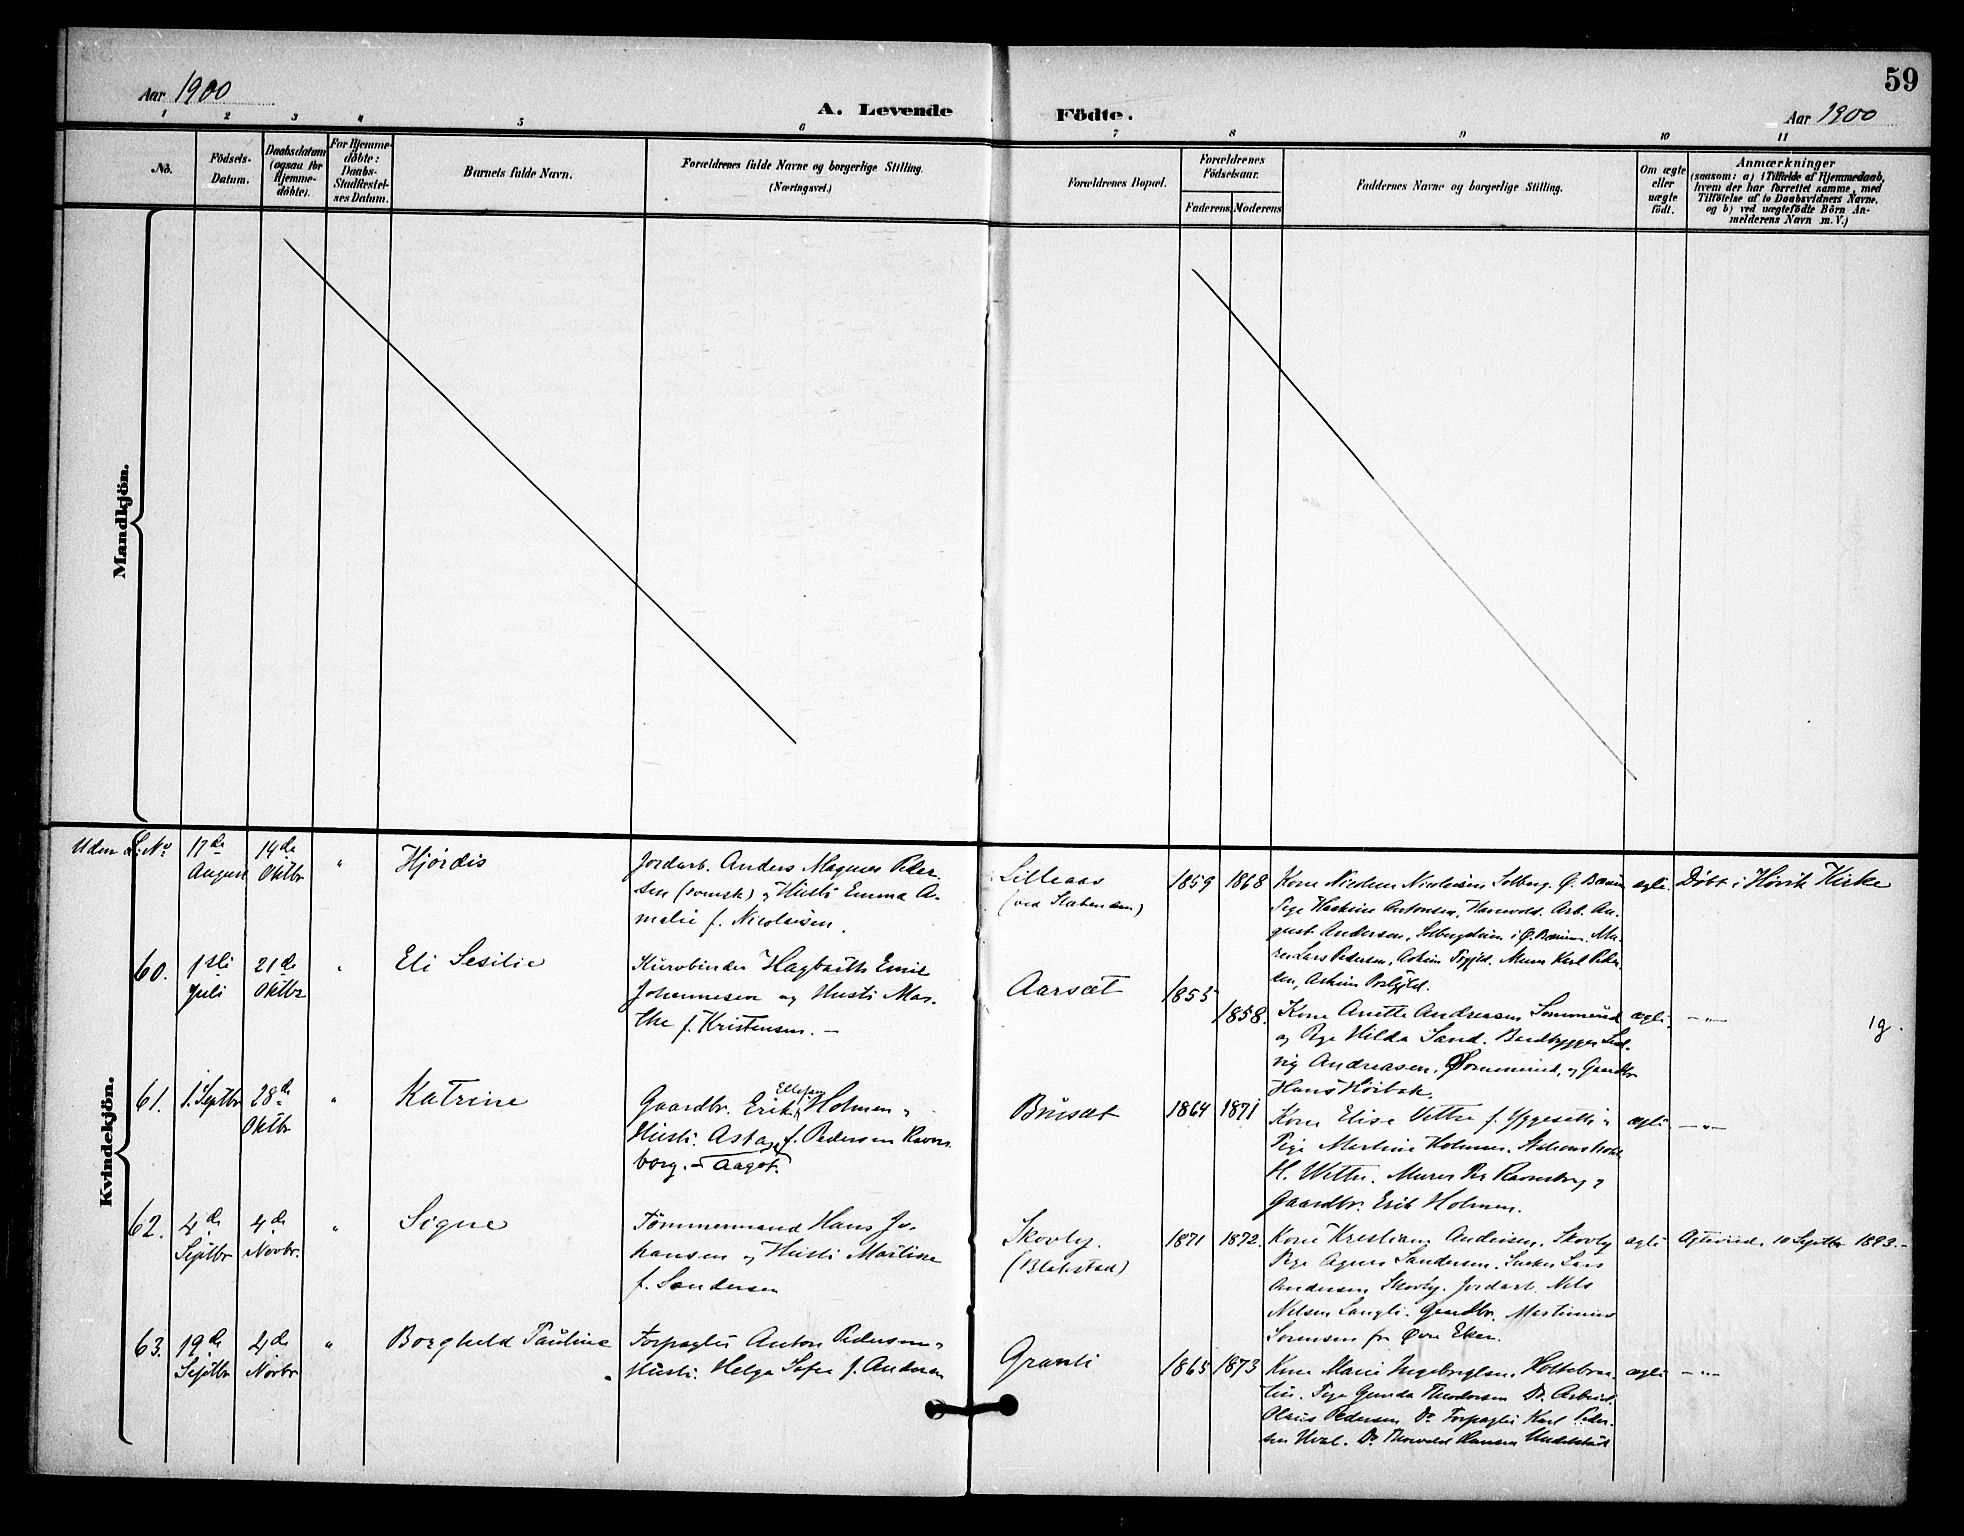 59
Aar 1900
A. Levende
Födte.
Aar 1900
1 2 3 4 5 6 7 8 9 10 11
No.
Födsels-
Datum.
Daabsdatum
(ogsaa for
Hjemme-
döbte).
For Hjemme-
döbte:
Daabs-
Stadfæstel-
ses Datum.
Barnets fulde Navn.
Forældrenes fulde Navne og borgerlige Stilling.
(Næringsvei.)
Forældrenes Bopæl.
Forældrenes
Födselsaar.
Faderens
Moderens
Faddernes Navne og borgerlige Stilling.
Om ægte
eller
uægte
födt.
Anmærkninger
(saasom: a) i Tilfælde af Hjemmedaab,
hvem der har forrettet samme, med
Tilföielse af to Daabsvidners Navne,
og b) ved uægtefödte Börn An-
melderens Navn m. V.)
Mandkjön.
Kvindekjön.
Uden L: No
17de
August
14de
Oktbr
"
Hjørdis
Jordarb. Anders Magnus Peder-
sen (svensk) og Husti Emma A-
malie f. Nicolaisen.
Lilleaas
(ved Slabenden)
1859
1868
Kone Nicoline Nicolaisen Solberg. Ø. Bærum
Pige Haskine Antonsen, Harevold. Arb. Au-
gust Andersen, Solberghein i Ø. Bærum. Mu-
rer Lars Pedersen, Askim. Murer Karl Peder-
sen, Askim
ægte.
Døbt i Høvik Kirke
60.
1ste
Juli
21de
Oktbr
"
Eli Sesilie
Kurvbinder Hagbarth Emil
Johannesen og Husti Mar-
the f. Kristensen. -
Aarsæt
1855
1858.
Kone Anette Andreasen Sommerud
og Pige Hilda Sand. Baadbygger Lud-
vig Andreasen, Sommerud, og Gaardbr
Hans Hørbak.
ægte.
- " -
ig.
61.
1. Septbr
28de
Oktbr
"
Katrine
Gaardbr. Erik Ellefsen Holmen og
Husti. Asta f. Pedersen Ravns-
borg. - Aagot.
Brusæt
1864
1871
Kone Elise Vettre f. Yggeseth og
Pige Martine Holmen.
H. Vettre. Murer Per Ravnsborg og
Gaardbr. Erik Holmen.
ægte
- " -
62.
4de
Septbr
4de
Novbr.
"
Signe
Tømmermand Hans Jo-
hansen og Husti Matilde
f. Sandersen
Skovly.
(Blakstad)
1871
1872.
Kone Kristiane Andersen, Skovly
Pige Agnes Sandersen. Snekker Lars
Andersen Skovly. Jordarb. Nils
Nilsen Langli. Gaardbr. Martinius
Sørensen fra Øvre Eker.
ægte
Agteviede 10 Septbr 1893. -
63.
19de
Septbr
4de
Novbr
"
Borghild Pauline
Forpagter Anton Pedersen og
Husti. Helga Sofie f. Andersen
Granli
1865
1873
Kone Marie Ingebrigtsen, Holtebraa-
ten. Pige Gunda Theodorsen Do. Arbeid.
Olaus Pedersen Do. Forpagter Karl Peder-
sen Hval. Do. Thorvald Hansen Undelstad
ægte
- " -